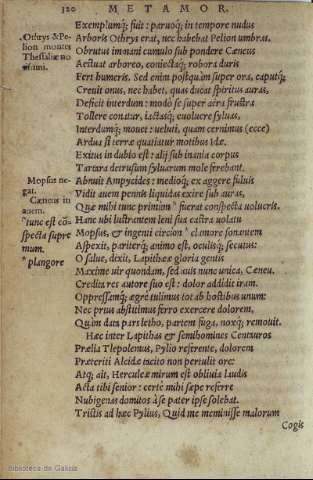 120 METAMOR.
Exemplumq́; fuit: paruoq́; in tempore nudus
Othrys & Pe-
lion montes
Thessaliæ no
Arboris Othrys erat, nec habebat Pelion umbras.
Obrutus immani cumulo sub pondere Cæneus
Aestuat arboreo, coniectaq́; robora duris
Fert humeris. Sed enim postquàm super ora, caputq́;
Creuit onus, nec habet, quas ducat spiritus auras,
Deficit interdum: modò se super aëra frustra
Tollere conatur, iactasq́; euoluere syluas,
Interdumq́; mouet: ueluti, quam cernimus (ecce)
Ardua si terræ quatiatur motibus Idæ.
Exitus in dubio est: alij sub inania corpus
Tartara detrusum syluarum mole ferebant.
Mopsus ne-
gat.
Cæneus in
auem.
*tunc est cõ-
specta supre
mum.
*plangore
Abnuit Ampycides: medioq́; ex aggere fuluis
Vidit auem pennis liquidas exire sub auras,
Quæ mihi tunc primùm * fuerat conspecta uolucris.
Hanc ubi lustrantem leni sua castra uolatu
Mopsus, & ingenti circùm * clamore sonantem
Aspexit, pariterq́; animo est, oculisq́; secutus:
O salue, dixit, Lapithææ gloria gentis
Maxime uir quondam, sed auis nunc unica, Cæneu.
Credita res autore suo est: dolor addidit iram.
Oppressumq́; ægre tulimus tot ab hostibus unum:
Nec prius abstitimus ferro exercere dolorem,
Quàm data pars letho, partem fuga, noxq́; remouit.
Hæc inter Lapithas & semihomines Centauros
Prælia Tlepolemus, Pylio referente, dolorem
Præteriti Alcidæ tacito non pertulit ore:
Atq́; ait, Herculeæ mirum est obliuia laudis
Acta tibi senior: certè mihi sæpe referre
Nubigenas domitos à se pater ipse solebat.
Tristis ad hæc Pylius, Quid me meminisse malorum
Cogis
Biblioteca de Galicia